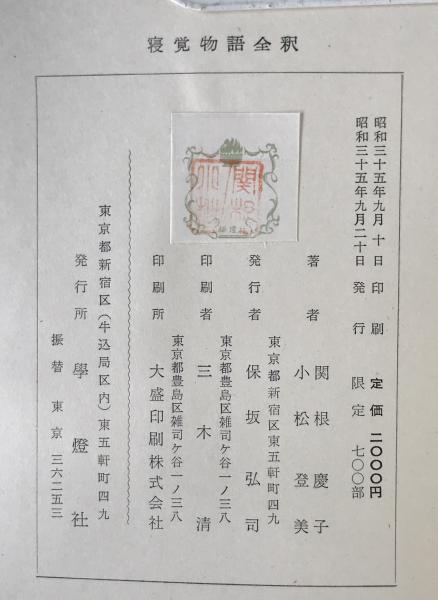 寝覚物語全釈
昭和三十五年九月 十 日 印刷
昭和三十五年九月二十日 発行
定価 二〇〇〇円
限定 七〇〇部
著者 関根慶子
小松登美
東京都新宿区東五軒町四九
発行者 保坂弘司
東京都豊島区雑司ケ谷一ノ三八
印刷者 三木清
東京都豊島区雑司ケ谷一ノ三八
印刷所 大盛印刷株式会社
東京都新宿区(牛込局区内)東五軒町四九
発行所 學燈社
振替東京三六二五三